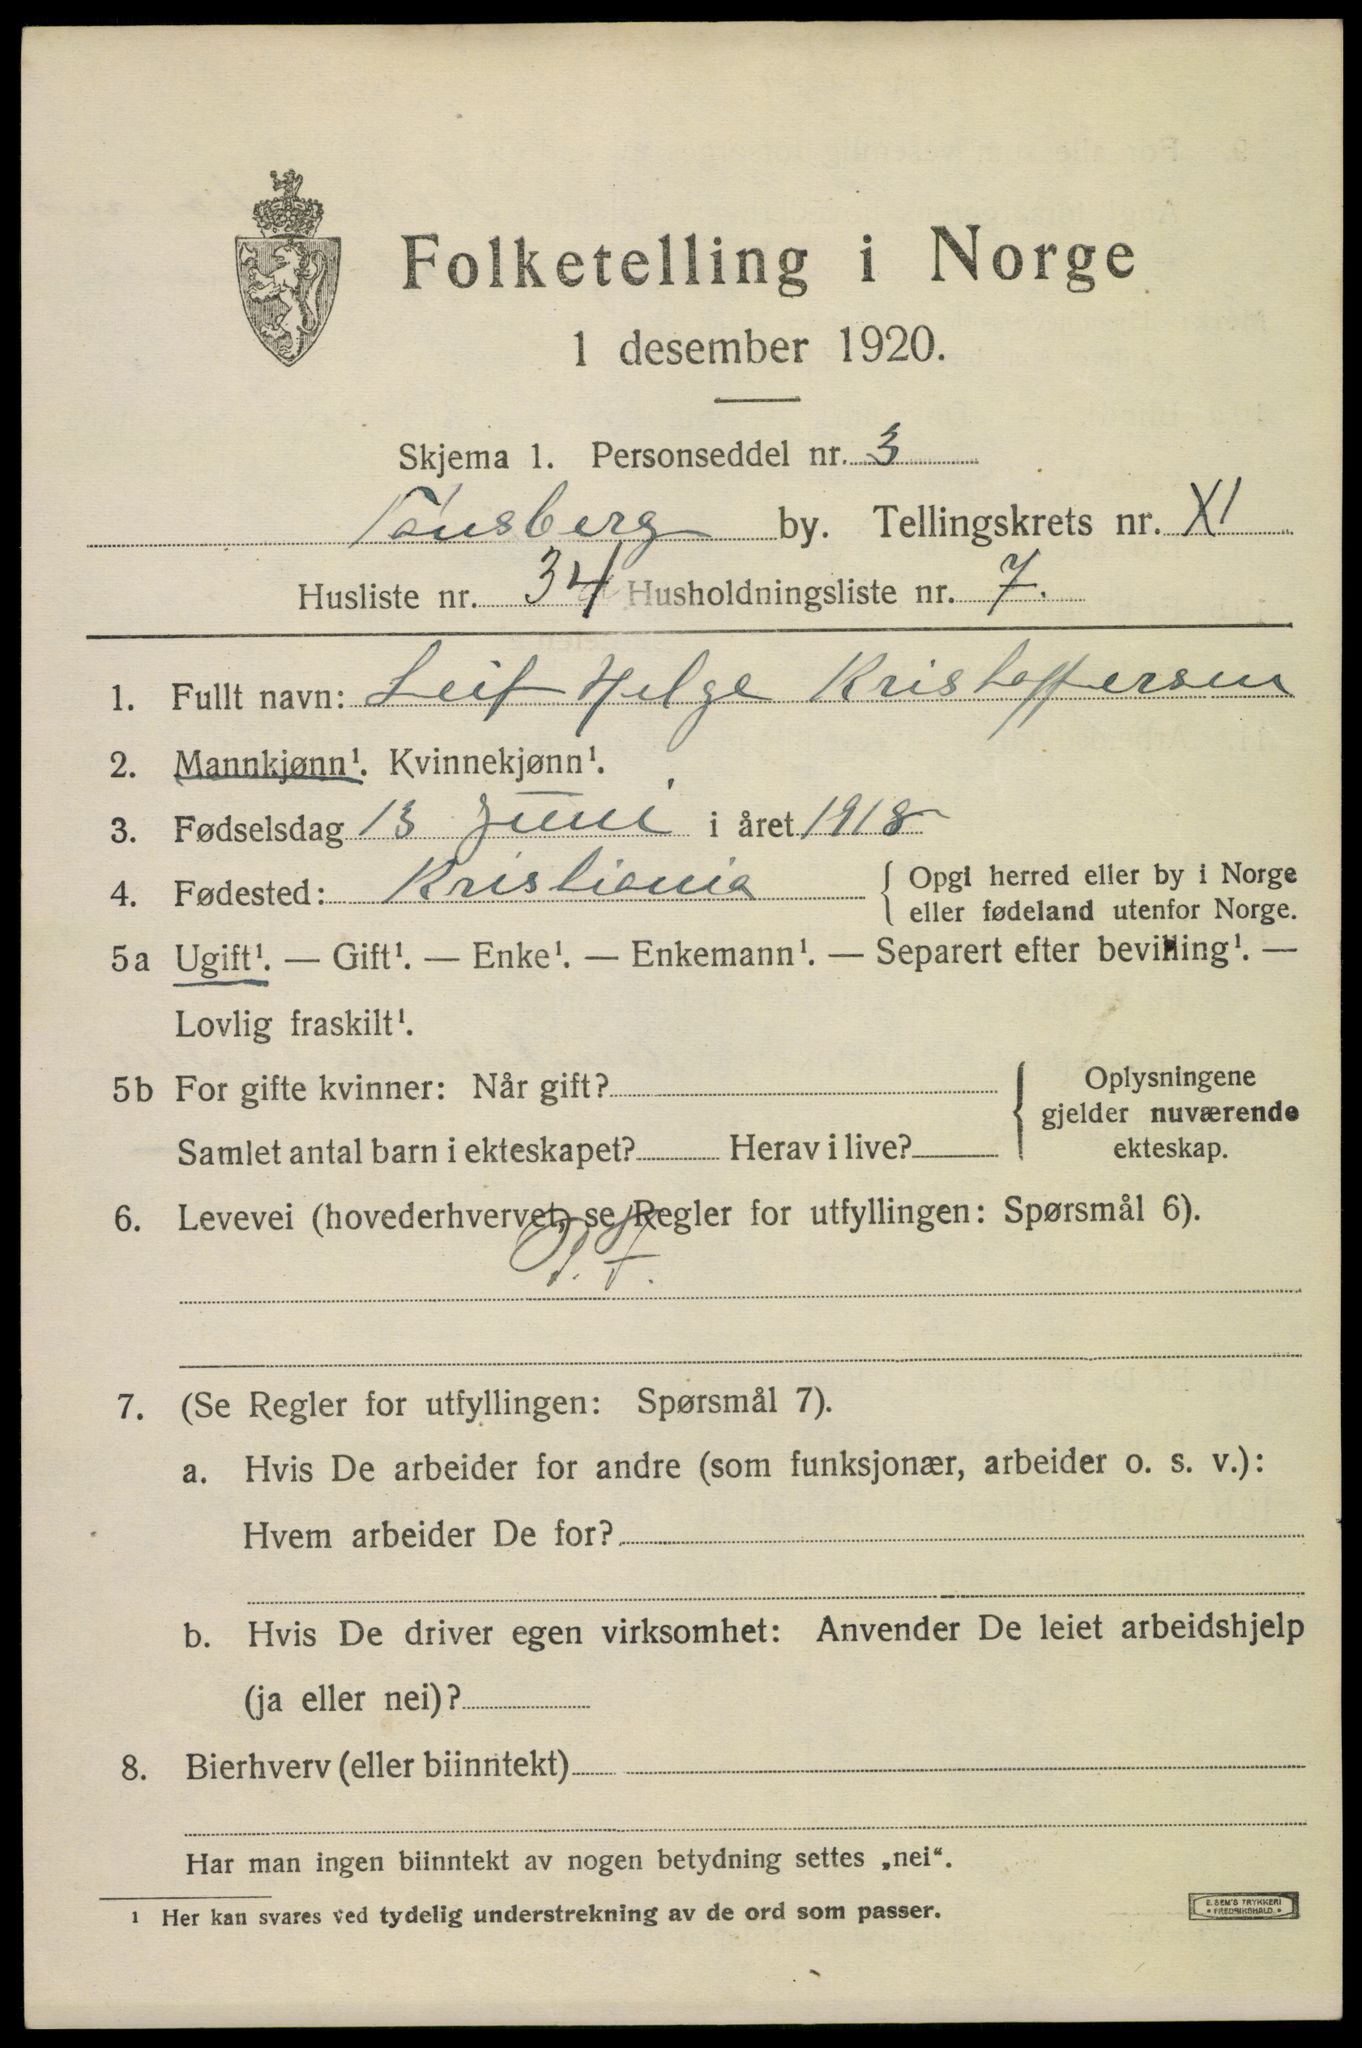 Folketelling i Norge
1 desember 1920.
Skjema 1. Personseddel nr. 3
Tønsberg by. Tellingskrets nr. XI
Husliste nr. 34 Husholdningsliste nr. 7.
1. Fullt navn: Leif Helge Kristoffersen
2. Mannkjønn¹. Kvinnekjønn¹.
3. Fødselsdag 13 juni i året 1918
4. Fødested: Kristiania { Opgi herred eller by i Norge
eller fødeland utenfor Norge.
5a Ugift¹. — Gift¹. — Enke¹. — Enkemann¹. — Separert efter bevilling¹. —
Lovlig fraskilt¹.
5b For gifte kvinner: Når gift? { Oplysningene
gjelder nuværende
Samlet antal barn i ekteskapet? Herav i live? ekteskap.
6. Levevei (hovederhvervet, se Regler for utfyllingen: Spørsmål 6).
7. (Se Regler for utfyllingen: Spørsmål 7).
a. Hvis De arbeider for andre (som funksjonær, arbeider o. s. v.):
Hvem arbeider De for?
b. Hvis De driver egen virksomhet: Anvender De leiet arbeidshjelp
(ja eller nei)?
8. Bierhverv (eller biinntekt)
Har man ingen biinntekt av nogen betydning settes „nei“.
¹ Her kan svares ved tydelig understrekning av de ord som passer.
E. SEM'S TRYKKERI
• FREDRIKSHALD. •